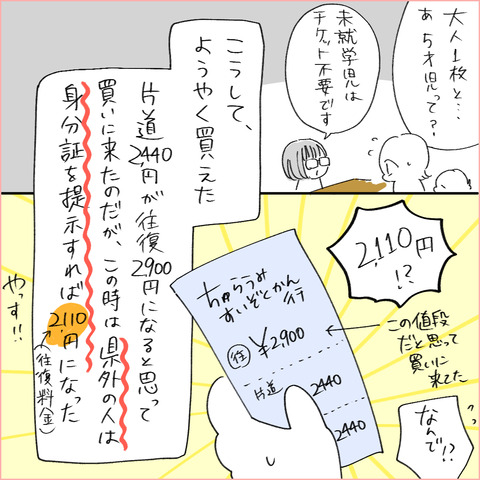 大人1枚と…
あ5才児って?
未就学児は
チケット不要です
こうして、
ようやく買えた
片道2440円が往復2900円になると思って
買いに来たのだが、この時は県外の人は
身分証を提示すれば2,110円になった
(往復料金)
やっす!!
2,110円
!?
ちゅらうみ
すいぞくかん
行
往 ¥2,900
片道 2440
2440
この値段
だと思って
買いに
来てた
なんで!?